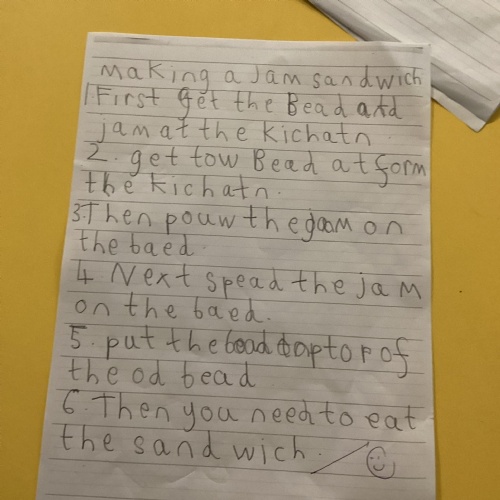 making a Jam sandwich
1 First get the Bead and
jam at the kichatn
2. get tow Bead at form
the kichatn.
3. Then pouw the jaom on
the baed.
4. Next spead the jam
on the baed.
5. put the bead top of
the od bead
6. Then you need to eat
the sandwich.